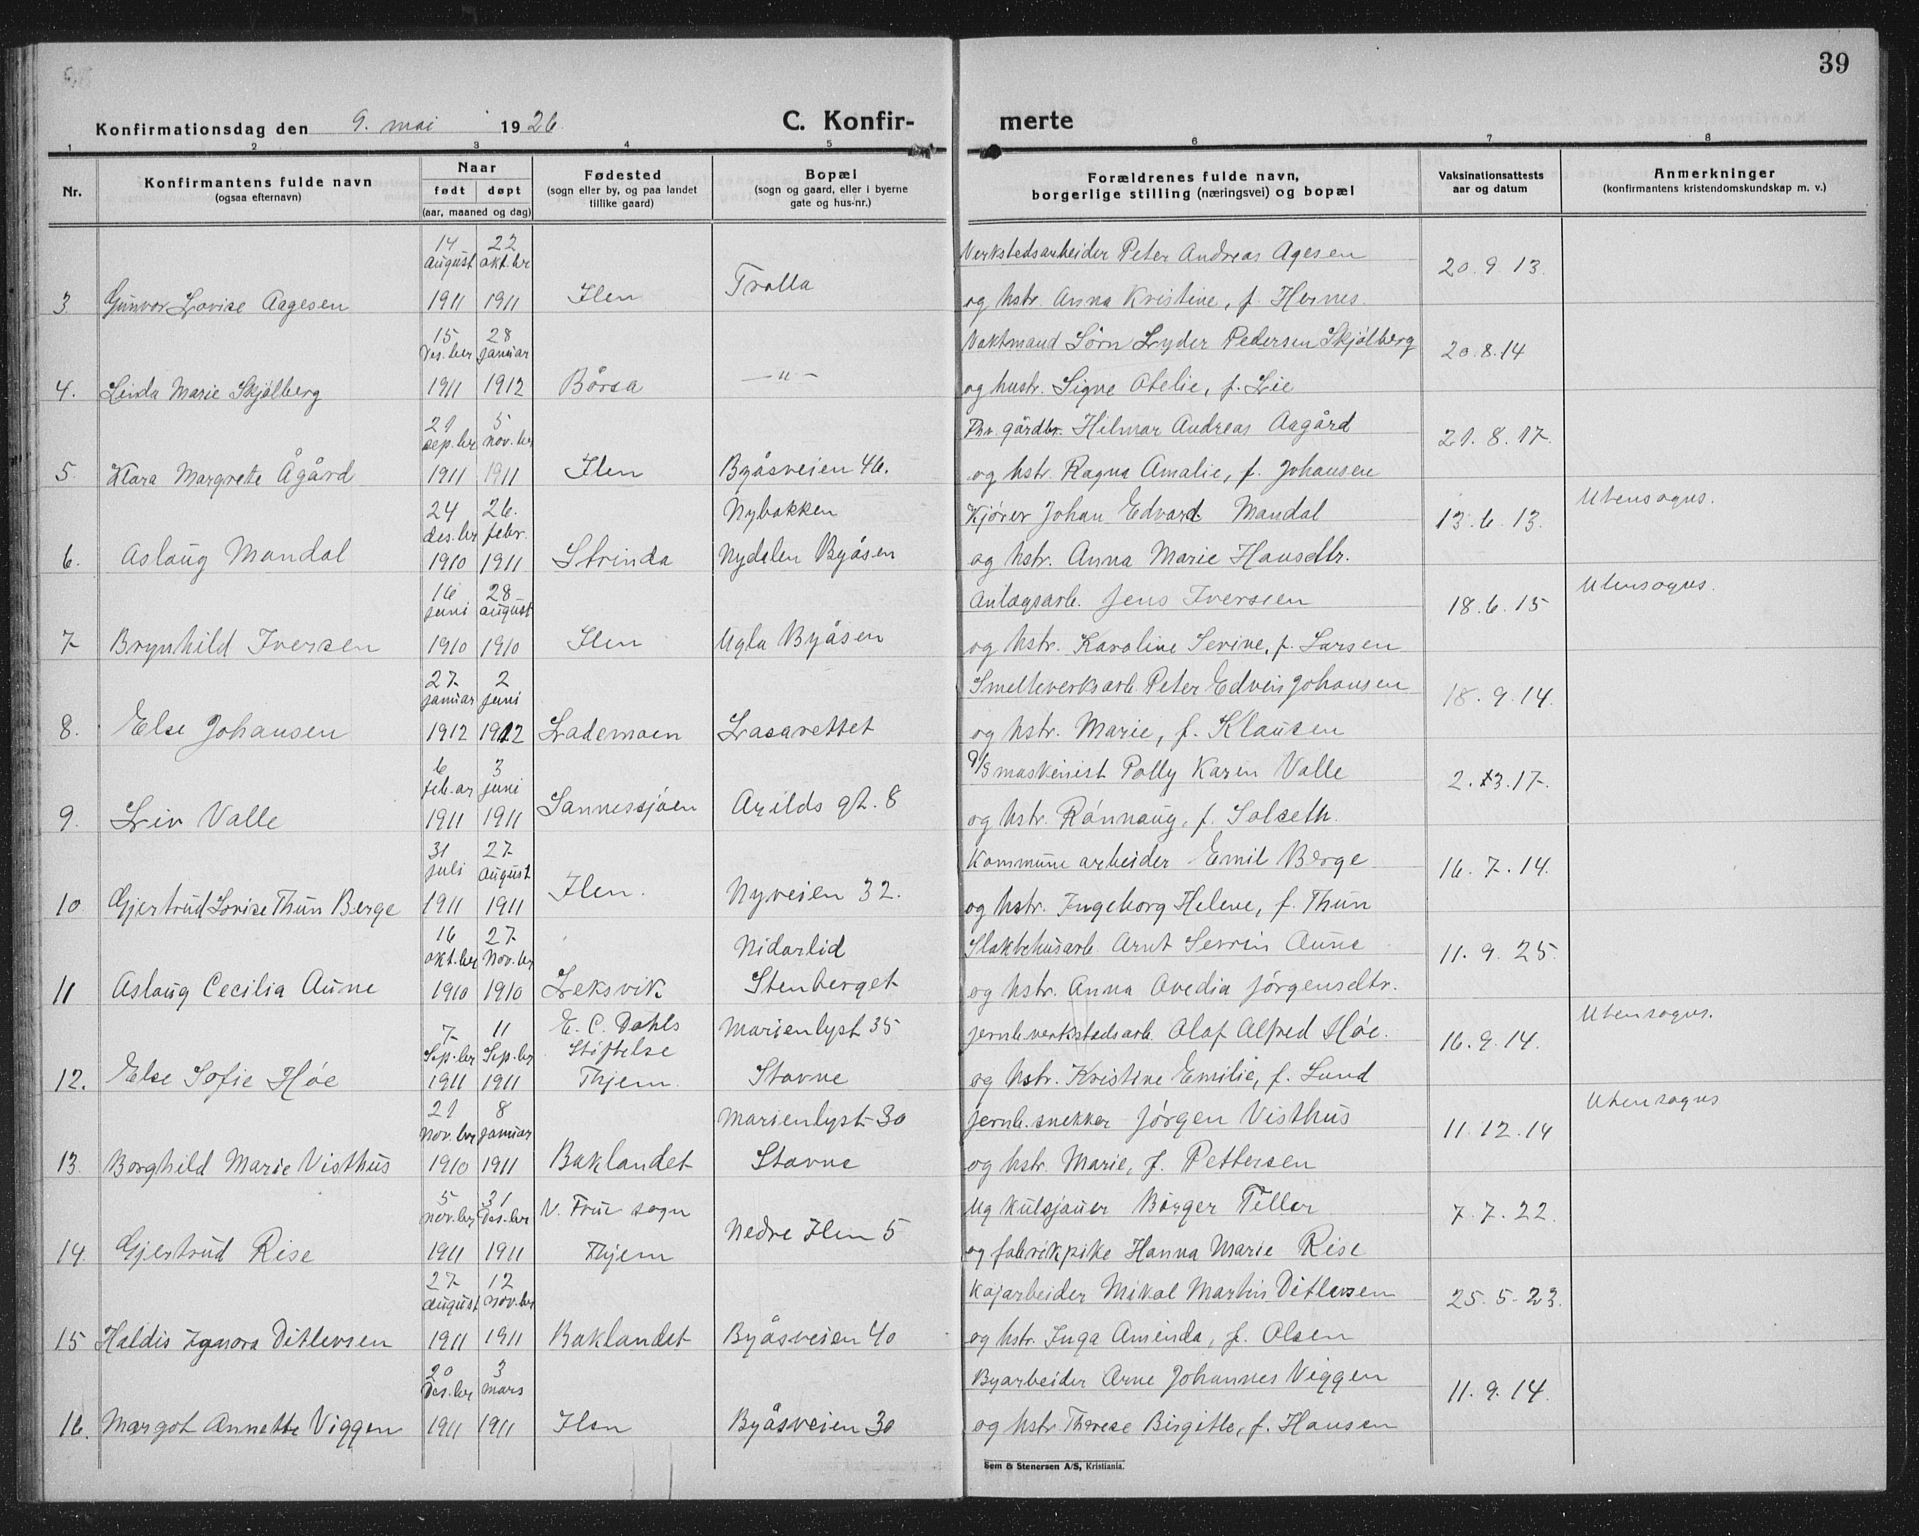 39
Konfirmationsdag den 9. mai 1926. C. Konfir- merte
1 2 3 4 5 6 7 8
Nr. Konfirmantens fulde navn (ogsaa efternavn) Naar født døpt (aar, maaned og dag) Fødested (sogn eller by, og paa landet tillike gaard) Bopæl (sogn og gaard, eller i byerne gate og hus-nr.) Forældrenes fulde navn, borgerlige stilling (næringsvei) og bopæl Vaksinationsattests aar og datum Anmerkninger (konfirmantens kristendomskundskap m. v.)
14 august 22 okt.ber Verkstedsarbeider Peter Andreas Agesen 20.9.13.
3 Gunvor Lovise Aagesen 1911 1911 Ilen Trolla og hstr. Anna Kristine, f. Hernes.
15 Des.ber 28 januar Vaktmand Sørn Lyder Pedersen Skjølberg 20.8.14
4. Linda Marie Skjølberg 1911 1912 Børsa —"— og hustr. Signe Otelie, f. Lie
21 sep.ber 5 nov.ber Fhv. gårdbr. Hilmar Andreas Aagård 21.8.17.
5. Klara Margrete Ågård 1911 1911 Ilen Byåsveien 46. og hstr. Ragna Amalie, f. Johansen
24 des.ber 26. febr. Nybakken Kjører Johan Edvard Mandal 13.6.13. Utensogns.
6. Aslaug Mandal 1910 1911 Strinda Nydalen Byåsen og hstr. Anna Marie Hansdtr.
16 juni 28 august Anlægsarb. Jens Iversen 18.6.15 Utensogns.
7 Brynhild Iversen 1910 1910 Ilen Ugla Byåsen og hstr. Karoline Sevine, f. Larsen
27 januar 2 juni Smelteverksarb. Peter Edvin Johansen 18.9.14.
8. Else Johansen 1912 1912 Lademoen Lasarettet og hstr. Marie, f. Klausen
6 feb.ar 3 juni D/S maskinist Polly Karen Valle 2.3.17.
9. Liv Valle 1911 1911 Sannessjøen Arilds gt. 8 og hstr. Rønnaug, f. Solseth.
31 juli 27 August Kommunearbeider Emil Berge 16.7.14.
10 Gjertrud Lovise Thun Berge 1911 1911 Ilen. Nyveien 32. og hstr. Ingeborg Helene, f. Thun
16 okt.ber 27 Nov.ber Nidarlid Slaktehusarb. Arnt Serrin Aune 11.9.25.
11 Aslaug Cecilia Aune 1910 1910 Leksvik Stenberget og hstr. Anna Ovedia Jørgensdtr.
7 Sep.ber 11 Sep.ber E. C. Dahls Stiftelse Marienlyst 35 jernb.verkstedsarb. Olaf Alfred Høe. 16.9.14. Utensogns.
12. Else Sofie Høe 1911 1911 Thjem. Stavne og hstr. Kristine Emilie, f. Lund
21 nov.ber 8 januar Marienlyst 30 jernb.snekker Jørgen Visthus 11.12.14 Utensogns
13. Borghild Marie Visthus 1910 1911 Baklandet Stavne og hstr. Marie, f. Pettersen
5 nov.ber 31 Des.ber V. Frue sogn Ug kulsjauer Børger Tiller 7.7.22.
14. Gjertrud Rise 1911 1911 Thjem Nedre Ilen 5 og fabrikpike Hanna Marie Rise
27 august 12 nov.ber Kajarbeider Mikal Martin Ditlevsen 25.5.23.
15 Haldis Ignora Ditlevsen 1911 1911 Baklandet Byåsveien 40 og hstr. Inga Aminda, f. Olsen
20 Des.ber 3 mars Byarbeider Arne Johannes Viggen 11.9.14.
16. Margot Annette Viggen 1911 1911 Ilen Byåsveien 30 og hstr. Therese Birgitte, f. Hansen
Sem & Stenersen A/S, Kristiania.